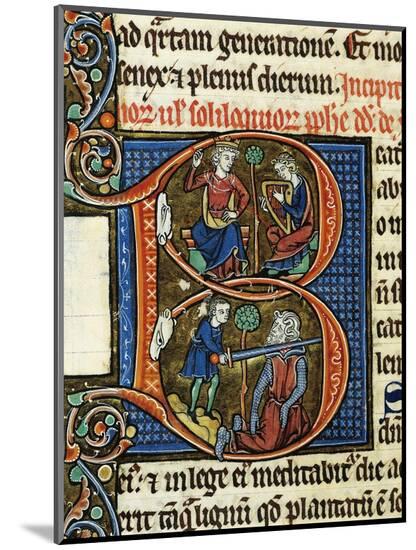 ad qrtam generationē. Et mo
senex ⁊ plenus dierum. Incipit
nor ul soliloquior ꝓphe dd: de
cat
ab
o m
cat
len
ei᷒. ⁊ in lege ei᷒ meditabit᷑ die a
erit tāq̃ lignum qd̃ plantatū ē s